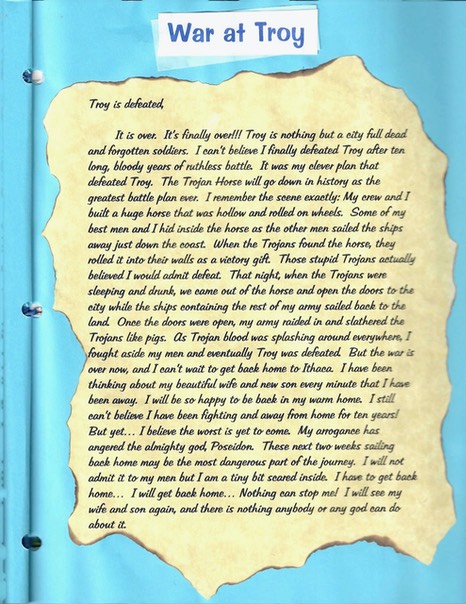 War at Troy
Troy is defeated,
It is over. It's finally over!!! Troy is nothing but a city full dead
and forgotten soldiers. I can't believe I finally defeated Troy after ten
long, bloody years of ruthless battle. It was my clever plan that
defeated Troy. The Trojan Horse will go down in history as the
greatest battle plan ever. I remember the scene exactly: My crew and I
built a huge horse that was hollow and rolled on wheels. Some of my
best men and I hid inside the horse as the other men sailed the ships
away just down the coast. When the Trojans found the horse, they
rolled it into their walls as a victory gift. Those stupid Trojans actually
believed I would admit defeat. That night, when the Trojans were
sleeping and drunk, we came out of the horse and open the doors to the
city while the ships containing the rest of my army sailed back to the
land. Once the doors were open, my army raided in and slathered the
Trojans like pigs. As Trojan blood was splashing around everywhere, I
fought aside my men and eventually Troy was defeated. But the war is
over now, and I can't wait to get back home to Ithaca. I have been
thinking about my beautiful wife and new son every minute that I have
been away. I will be so happy to be back in my warm home. I still
can't believe I have been fighting and away from home for ten years!
But yet... I believe the worst is yet to come. My arrogance has
angered the almighty god, Poseidon. These next two weeks sailing
back home may be the most dangerous part of the journey. I will not
admit it to my men but I am a tiny bit scared inside. I have to get back
home... I will get back home... Nothing can stop me! I will see my
wife and son again, and there is nothing anybody or any god can do
about it.